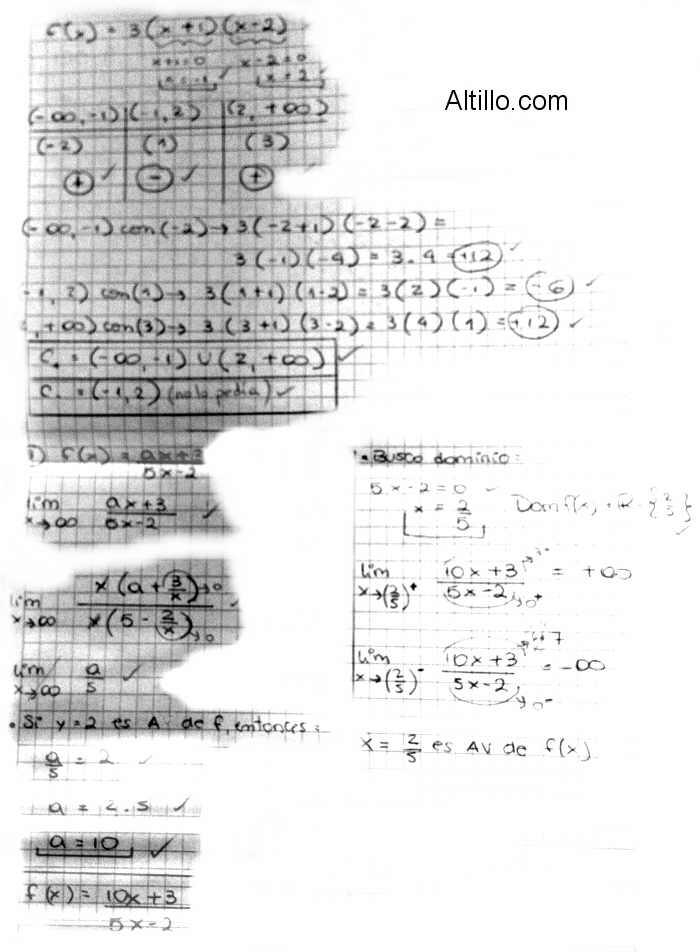 f(x) = 3(x+1)(x-2)
x+1=0 x-2=0
x=-1 ✓ x=2 ✓
Altillo.com
(-∞,-1) (-1,2) (2,+∞)
(-2) (1) (3)
+ ✓ - ✓ +
(-∞,-1) con (-2) → 3(-2+1)(-2-2) =
3(-1)(-4) = 3.4 = +12 ✓
-1, 2) con (1) → 3(1+1)(1-2) = 3(2)(-1) = -6 ✓
,+∞) con (3) → 3(3+1)(3-2) = 3(4)(1) = +12 ✓
C₊ = (-∞,-1) ∪ (2,+∞) ✓
C₋ = (-1,2) (no lo pedía) ✓
) f(x) = ax+3 / 5x-2
lim x→∞ ax+3 / 5x-2 ✓
lim x→∞ x(a + 3/x) →0 / x(5 - 2/x) →0 ✓
lim x→∞ a/5 ✓
• Si y=2 es A de f, entonces:
a/5 = 2 ✓
a = 2.5 ✓
a = 10 ✓
f(x) = 10x+3 / 5x-2
• Busco dominio:
5x-2=0 ✓
x = 2/5 Dom f(x) = R - {2/5} ✓
lim x→(2/5)⁺ 10x+3 / 5x-2 →0⁺ = +∞
lim x→(2/5)⁻ 10x+3 →7 / 5x-2 →0⁻ = -∞
x = 2/5 es AV de f(x)